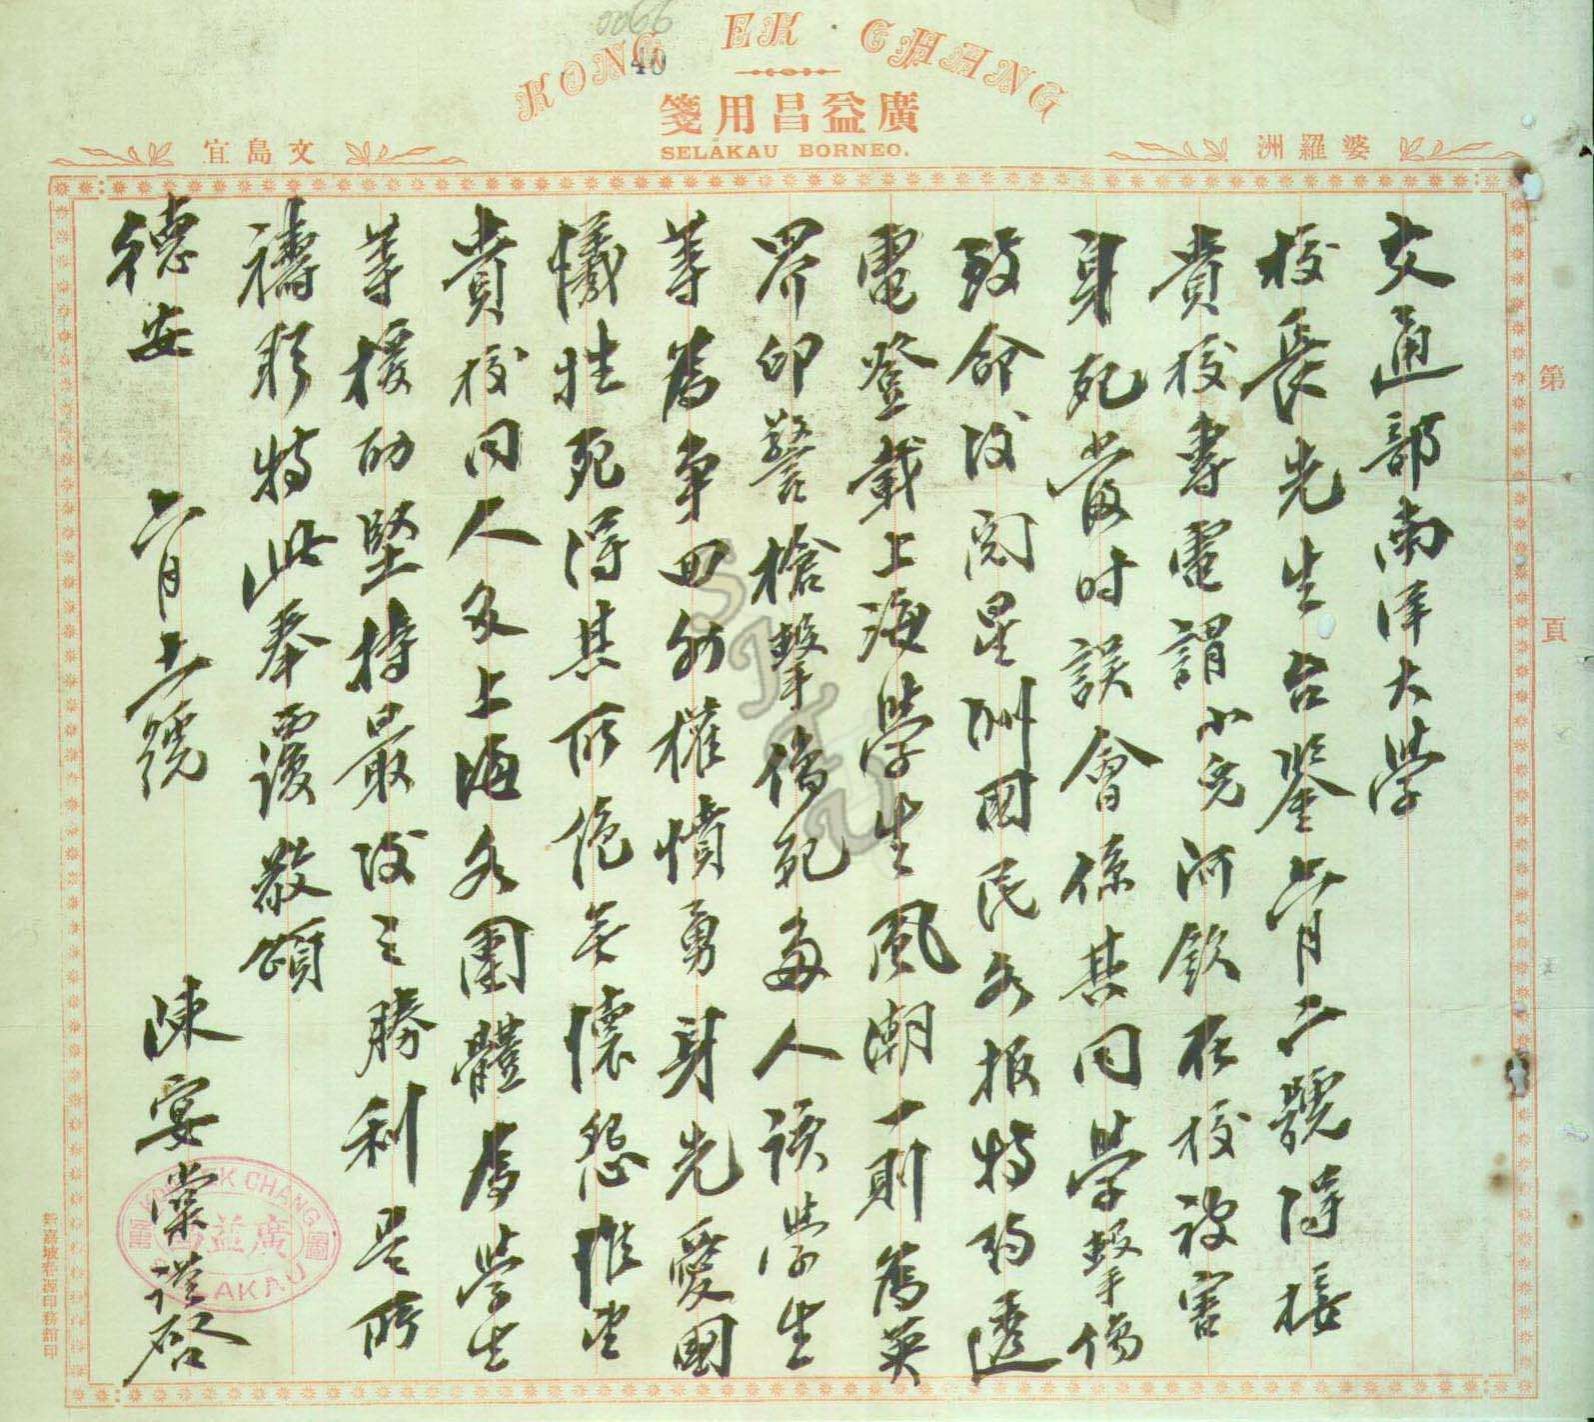 KONG EK CHANG
40
廣益昌用箋
SELAKAU BORNEO.
婆羅洲
文島宜
第 頁
交通部南洋大學
校長先生台鑒六月六號得接
貴校書電謂小兒河欽在校被害
身死當時誤會係其同學擊傷
致命后閱星洲國民各报特約透
電登載上海學生風潮一則為英
界印警槍擊傷死多人該學生
等為争回外權憤勇身先愛國
犧牲死得其所絕無懷怨惟望
貴校同人及上海各團體為學生
等援助堅持最後之勝利是所
禱移特此奉覆敬頌
德安 六月十一號
陳宴棠謹啓
EK CHANG
廣益
AKAU
SJTU